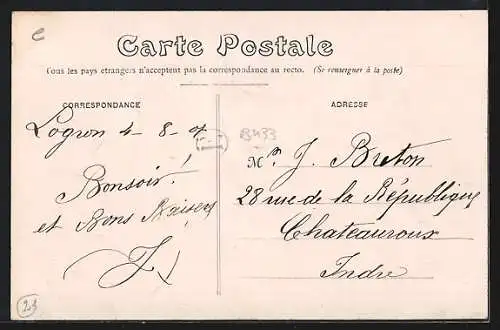 C
Carte Postale
Tous les pays etrangers n'acceptent pas la correspondance au recto. (Se renseigner à la poste)
CORRESPONDANCE
Logron 4-8-07
Bonsoir!
et Bons Baisers
J
203
ADRESSE
B433
Mr. J. Breton
28 rue de la République
Chateauroux
Indre